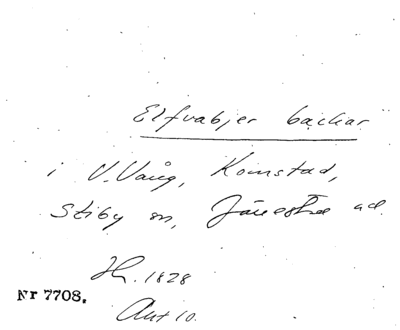 Elfvabjer backar
i V. Vång, Komstad,
Stiby sn, Järrestad
H. 1828
Nr 7708.
Ant 10.